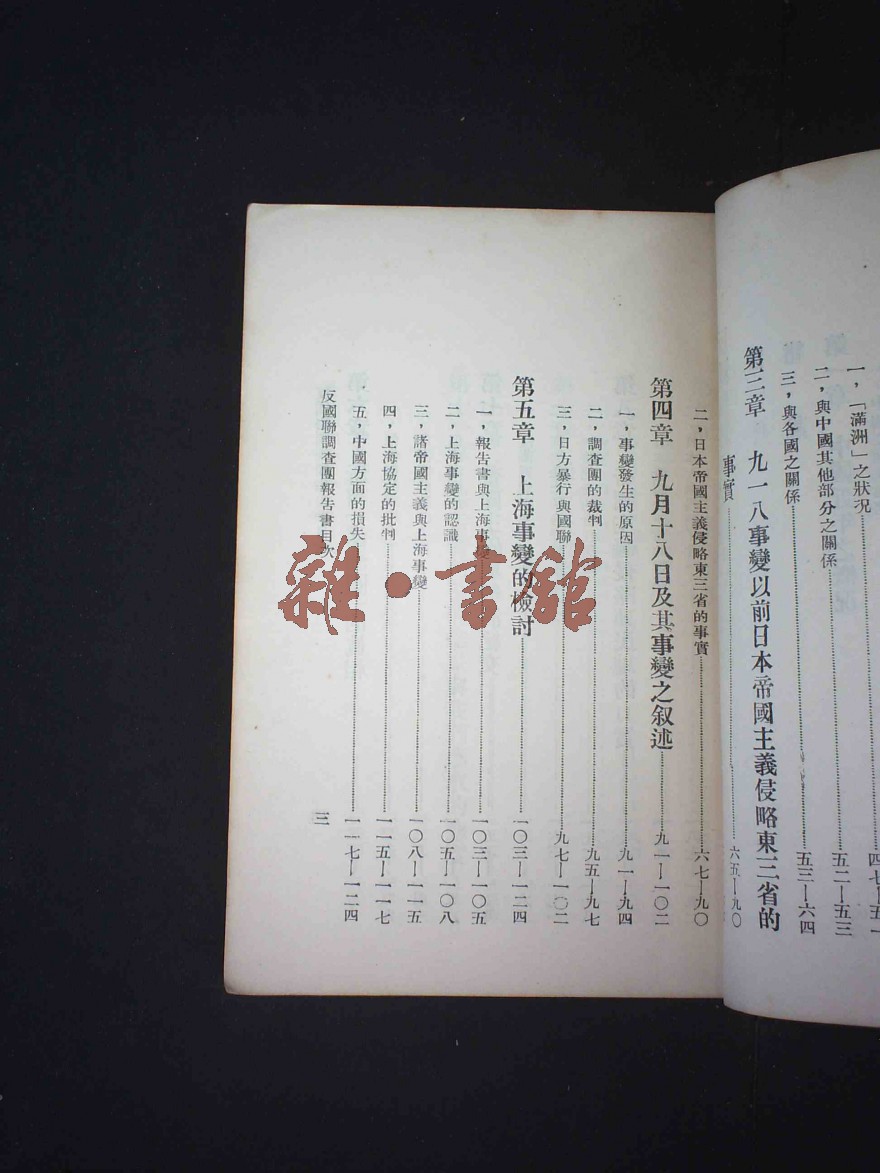 一，「滿洲」之狀況……四七—五一
二，與中國其他部分之關係……五二—五三
三，與各國之關係……五三—六四
第三章　九一八事變以前日本帝國主義侵略東三省的
事實……六五—九〇
二，日本帝國主義侵略東三省的事實……六七—九〇
第四章　九月十八日及其事變之叙述……九一—一〇二
一，事變發生的原因……九一—九四
二，調查團的裁判……九五—九七
三，日方暴行與國聯……九七—一〇二
第五章　上海事變的檢討……一〇三—一二四
一，報告書與上海事變……一〇三—一〇五
二，上海事變的認識……一〇五—一〇八
三，諸帝國主義與上海事變……一〇八—一一五
四，上海協定的批判……一一五—一一七
五，中國方面的損失……一一七—一二四
反國聯調查團報告書目次
三
雜·書館